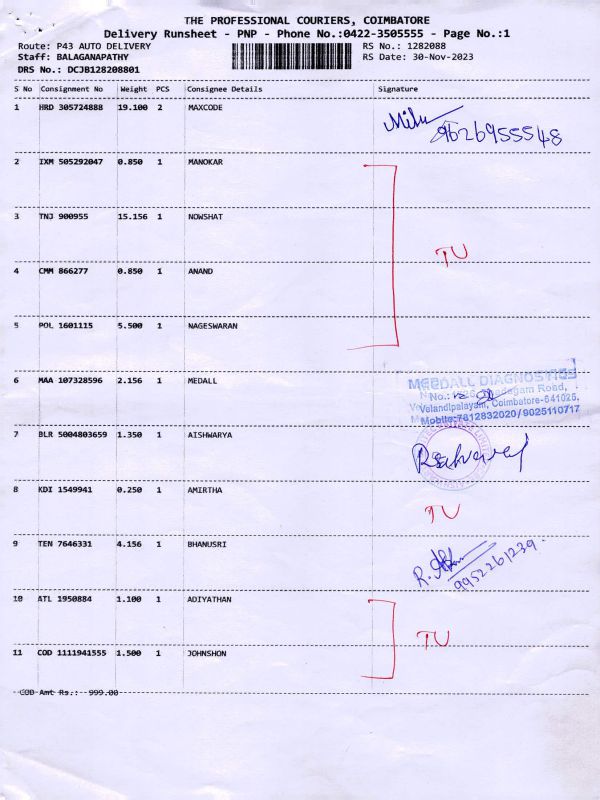 THE PROFESSIONAL COURIERS, COIMBATORE
Delivery Runsheet - PNP - Phone No.:0422-3505555 - Page No.:1
Route: P43 AUTO DELIVERY RS No.: 1282088
Staff: BALAGANAPATHY RS Date: 30-Nov-2023
DRS No.: DCJB128208801
S No Consignment No Weight PCS Consignee Details Signature
1 HRD 305724888 19.100 2 MAXCODE
9626955548
2 IXM 505292047 0.850 1 MANOKAR
3 TNJ 900955 15.156 1 NOWSHAT
TU
4 CMM 866277 0.850 1 ANAND
5 POL 1601115 5.500 1 NAGESWARAN
6 MAA 107328596 2.156 1 MEDALL
MEDALL DIAGNOSTICS
Road,
Velandipalayam, Coimbatore-641025.
Mobile:7812832020/9025110717
7 BLR 5004803659 1.350 1 AISHWARYA
8 KDI 1549941 0.250 1 AMIRTHA TU
9 TEN 7646331 4.156 1 BHANUSRI
9952261239
10 ATL 1950884 1.100 1 ADIYATHAN
TU
11 COD 1111941555 1.500 1 JOHNSHON
COD Amt Rs.: 999.00